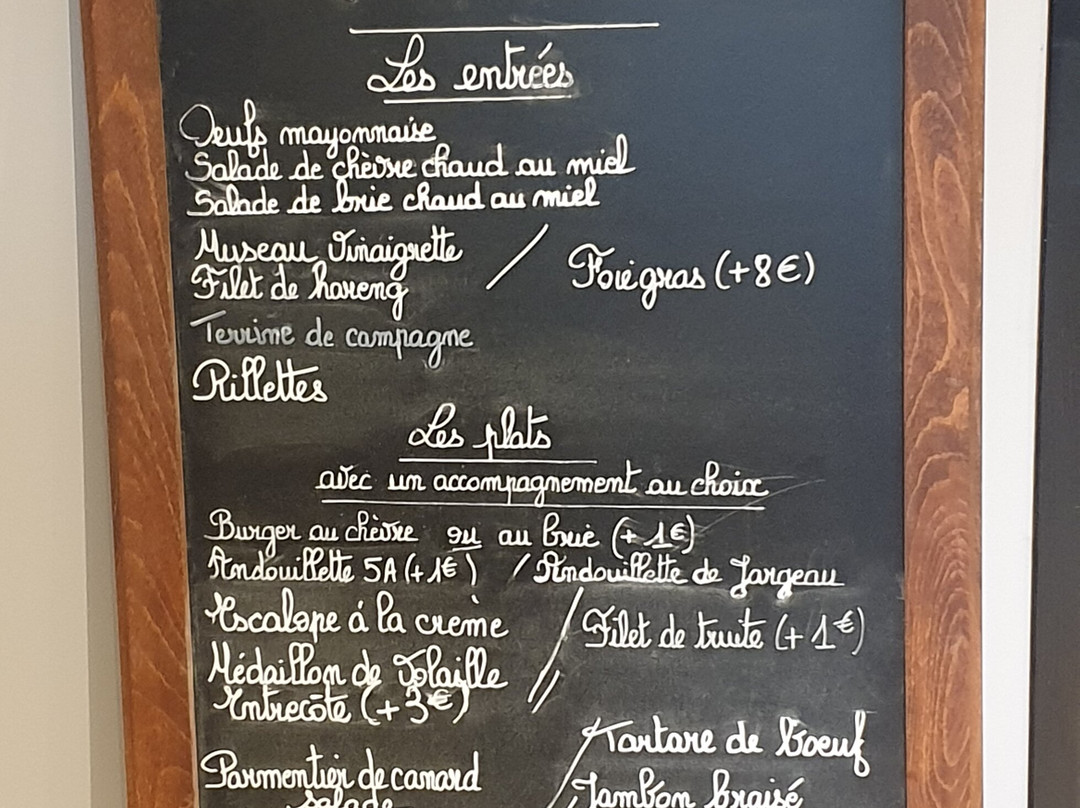 Les entrées
Oeufs mayonnaise
Salade de chèvre chaud au miel
Salade de brie chaud au miel
Museau Vinaigrette
Filet de hareng / Foie gras (+8€)
Terrine de campagne
Rillettes
Les plats
avec un accompagnement au choix
Burger au chèvre ou au brie (+1€)
Andouillette 5A (+1€) / Andouillette de Jargeau
Escalope á la crème / Filet de truite (+1€)
Médaillon de Volaille
Entrecôte (+3€) //
Tartare de boeuf
Parmentier de canard /
salade
Jambon braisé